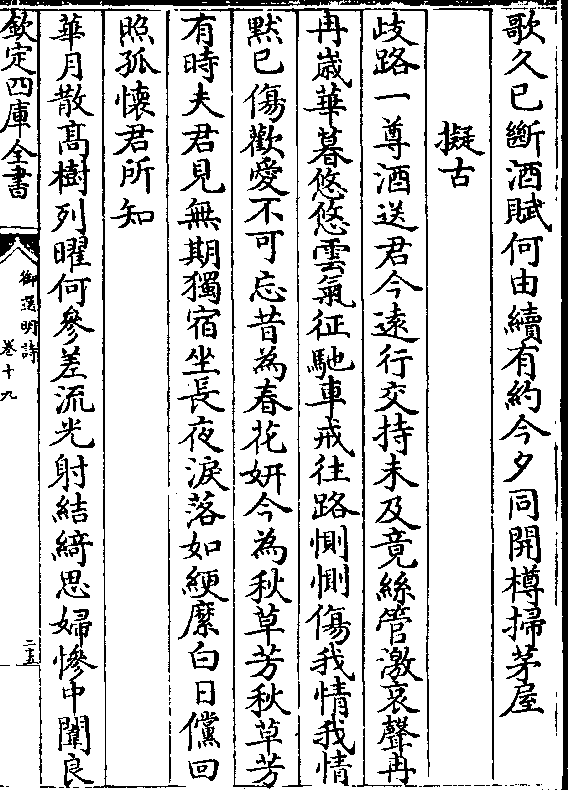 歌久已斷酒賦何由續有約今夕同開樽掃茅屋
擬古
歧路一尊酒送君今遠行交持未及竟絲管激哀聲冉
冉歲華暮悠悠雲氣征馳車戒往路惻惻傷我情我情
默已傷歡愛不可忘昔為春花妍今為秋草芳秋草芳
有時夫君見無期獨宿坐長夜淚落如綆縻白日儻回
照孤懷君所知
華月散髙樹列曜何參差流光射結綺思婦慘中閨良
欽定四庫全書
御選明詩
卷十九
二五